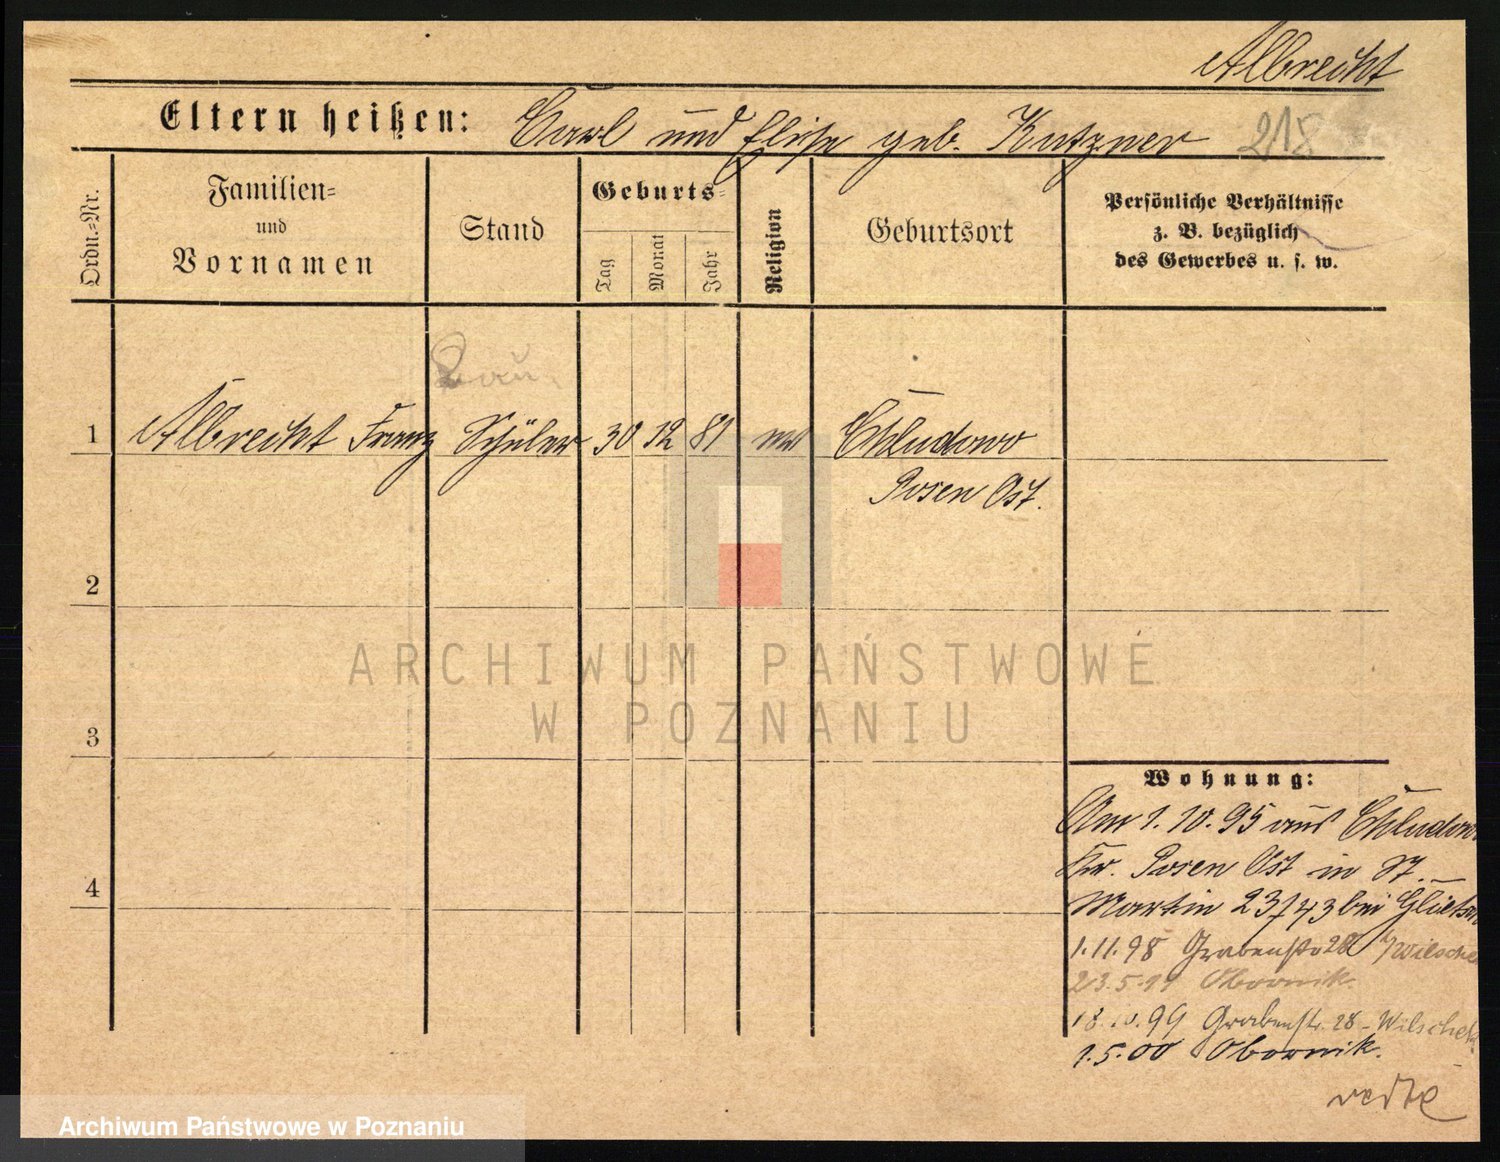 Albrecht
Eltern heißen: Carl und Elise geb. Kutzner 218
Ordn.=Nr.
Familien=
und
Vornamen
Stand
Geburts=
Tag
Monat
Jahr
Religion
Geburtsort
Persönliche Verhältnisse
z. B. bezüglich
des Gewerbes u. s. w.
1 Albrecht Franz Schüler 30 12 81 ev Chludowo
Posen Ost.
2
ARCHIWUM PAŃSTWOWE
W POZNANIU
3
Wohnung:
Am 1.10.95 aus Chludowo
Kr. Posen Ost in St.
4
Martin 23/43 bei
1.11.98 Grabenstr 28
23.5.99 Obornik.
18.10.99 Grabenstr. 28 - Wilscheck
1.5.00 Obornik.
Archiwum Państwowe w Poznaniu